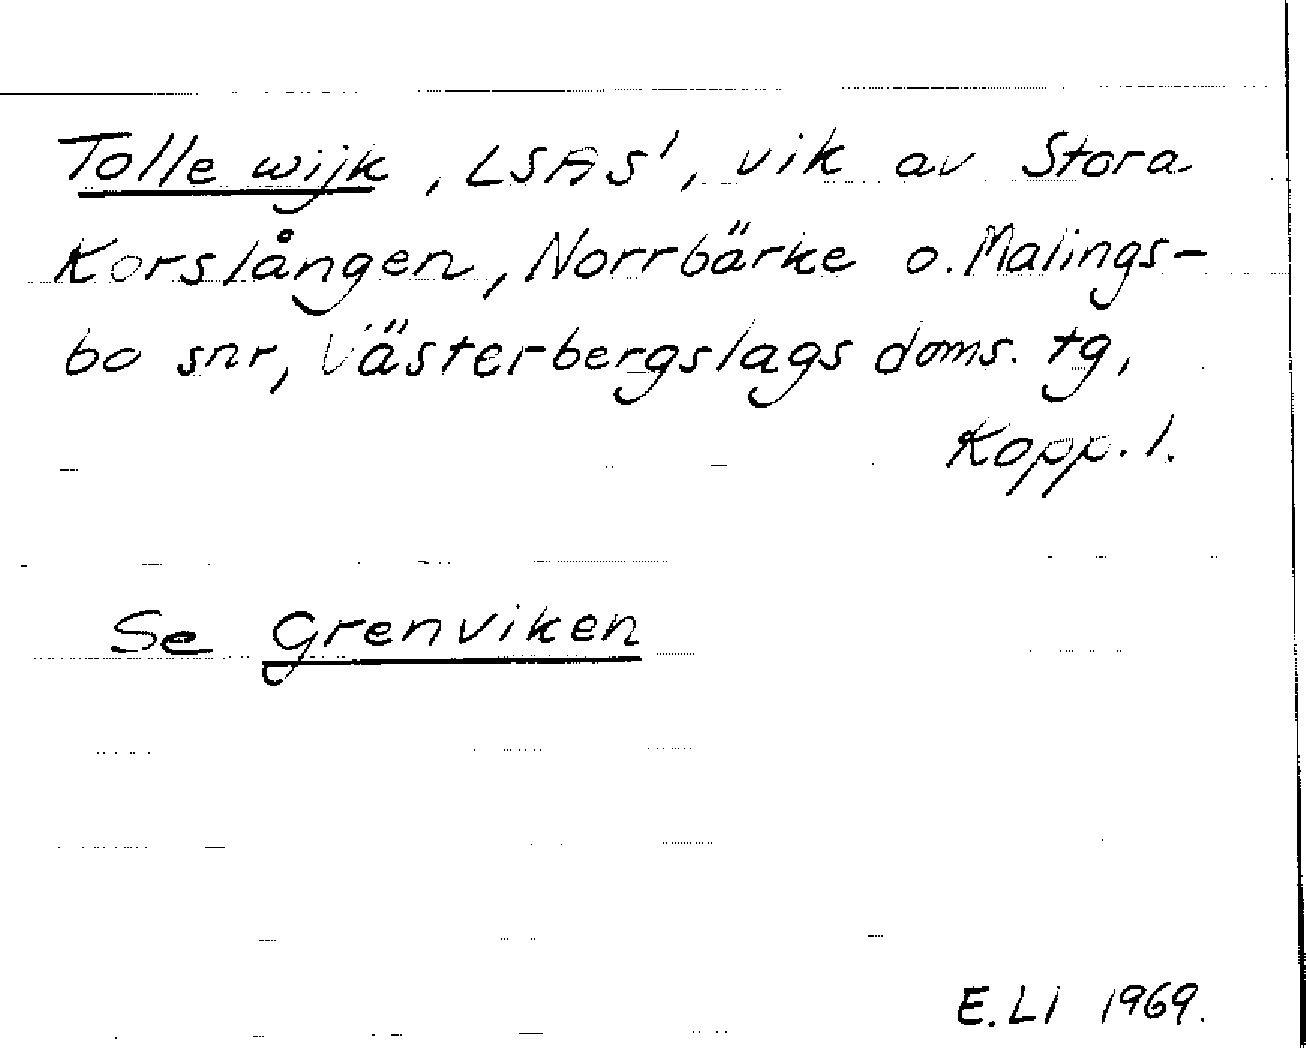 Tolle wijk, LSAS', vik av Stora
Korslången, Norrbärke o. Malings-
bo snr, Västerbergslags doms. tg,
Kopp. l.
Se Grenviken
E. Li 1969.